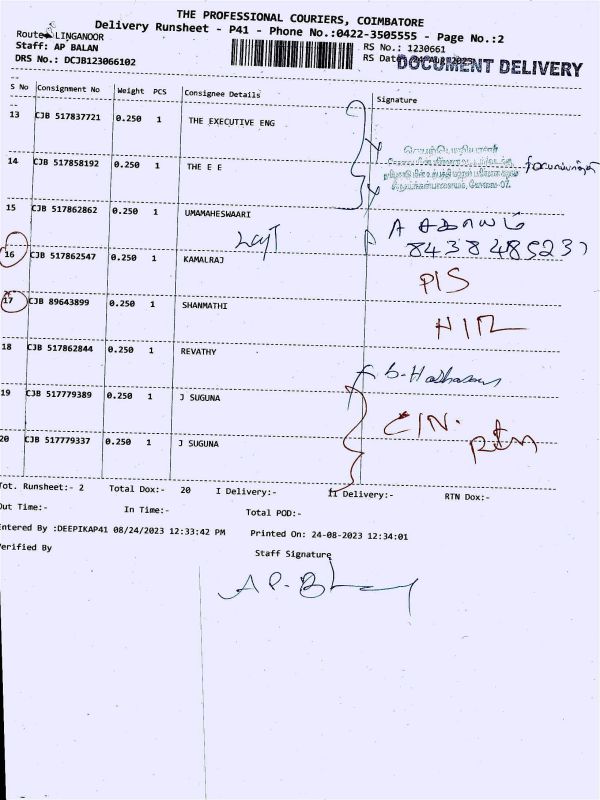 THE PROFESSIONAL COURIERS, COIMBATORE
Delivery Runsheet - P41 - Phone No.:0422-3505555 - Page No.:2
Route: LINGANOOR
RS No.: 1230661
Staff: AP BALAN
RS Date: 24 Aug 2023
DOCUMENT DELIVERY
DRS No.: DCJB123066102
S No Consignment No Weight PCS Consignee Details Signature
13 CJB 517837721 0.250 1 THE EXECUTIVE ENG
14 CJB 517858192 0.250 1 THE E E
15 CJB 517862862 0.250 1 UMAMAHESWAARI
8438485237
16 CJB 517862547 0.250 1 KAMALRAJ
P/S
17 CJB 89643899 0.250 1 SHANMATHI
18 CJB 517862844 0.250 1 REVATHY
19 CJB 517779389 0.250 1 J SUGUNA
C/N.
20 CJB 517779337 0.250 1 J SUGUNA
rtn
Tot. Runsheet:- 2 Total Dox:- 20 I Delivery:- II Delivery:- RTN Dox:-
Out Time:- In Time:- Total POD:-
Entered By :DEEPIKAP41 08/24/2023 12:33:42 PM Printed On: 24-08-2023 12:34:01
Verified By Staff Signature